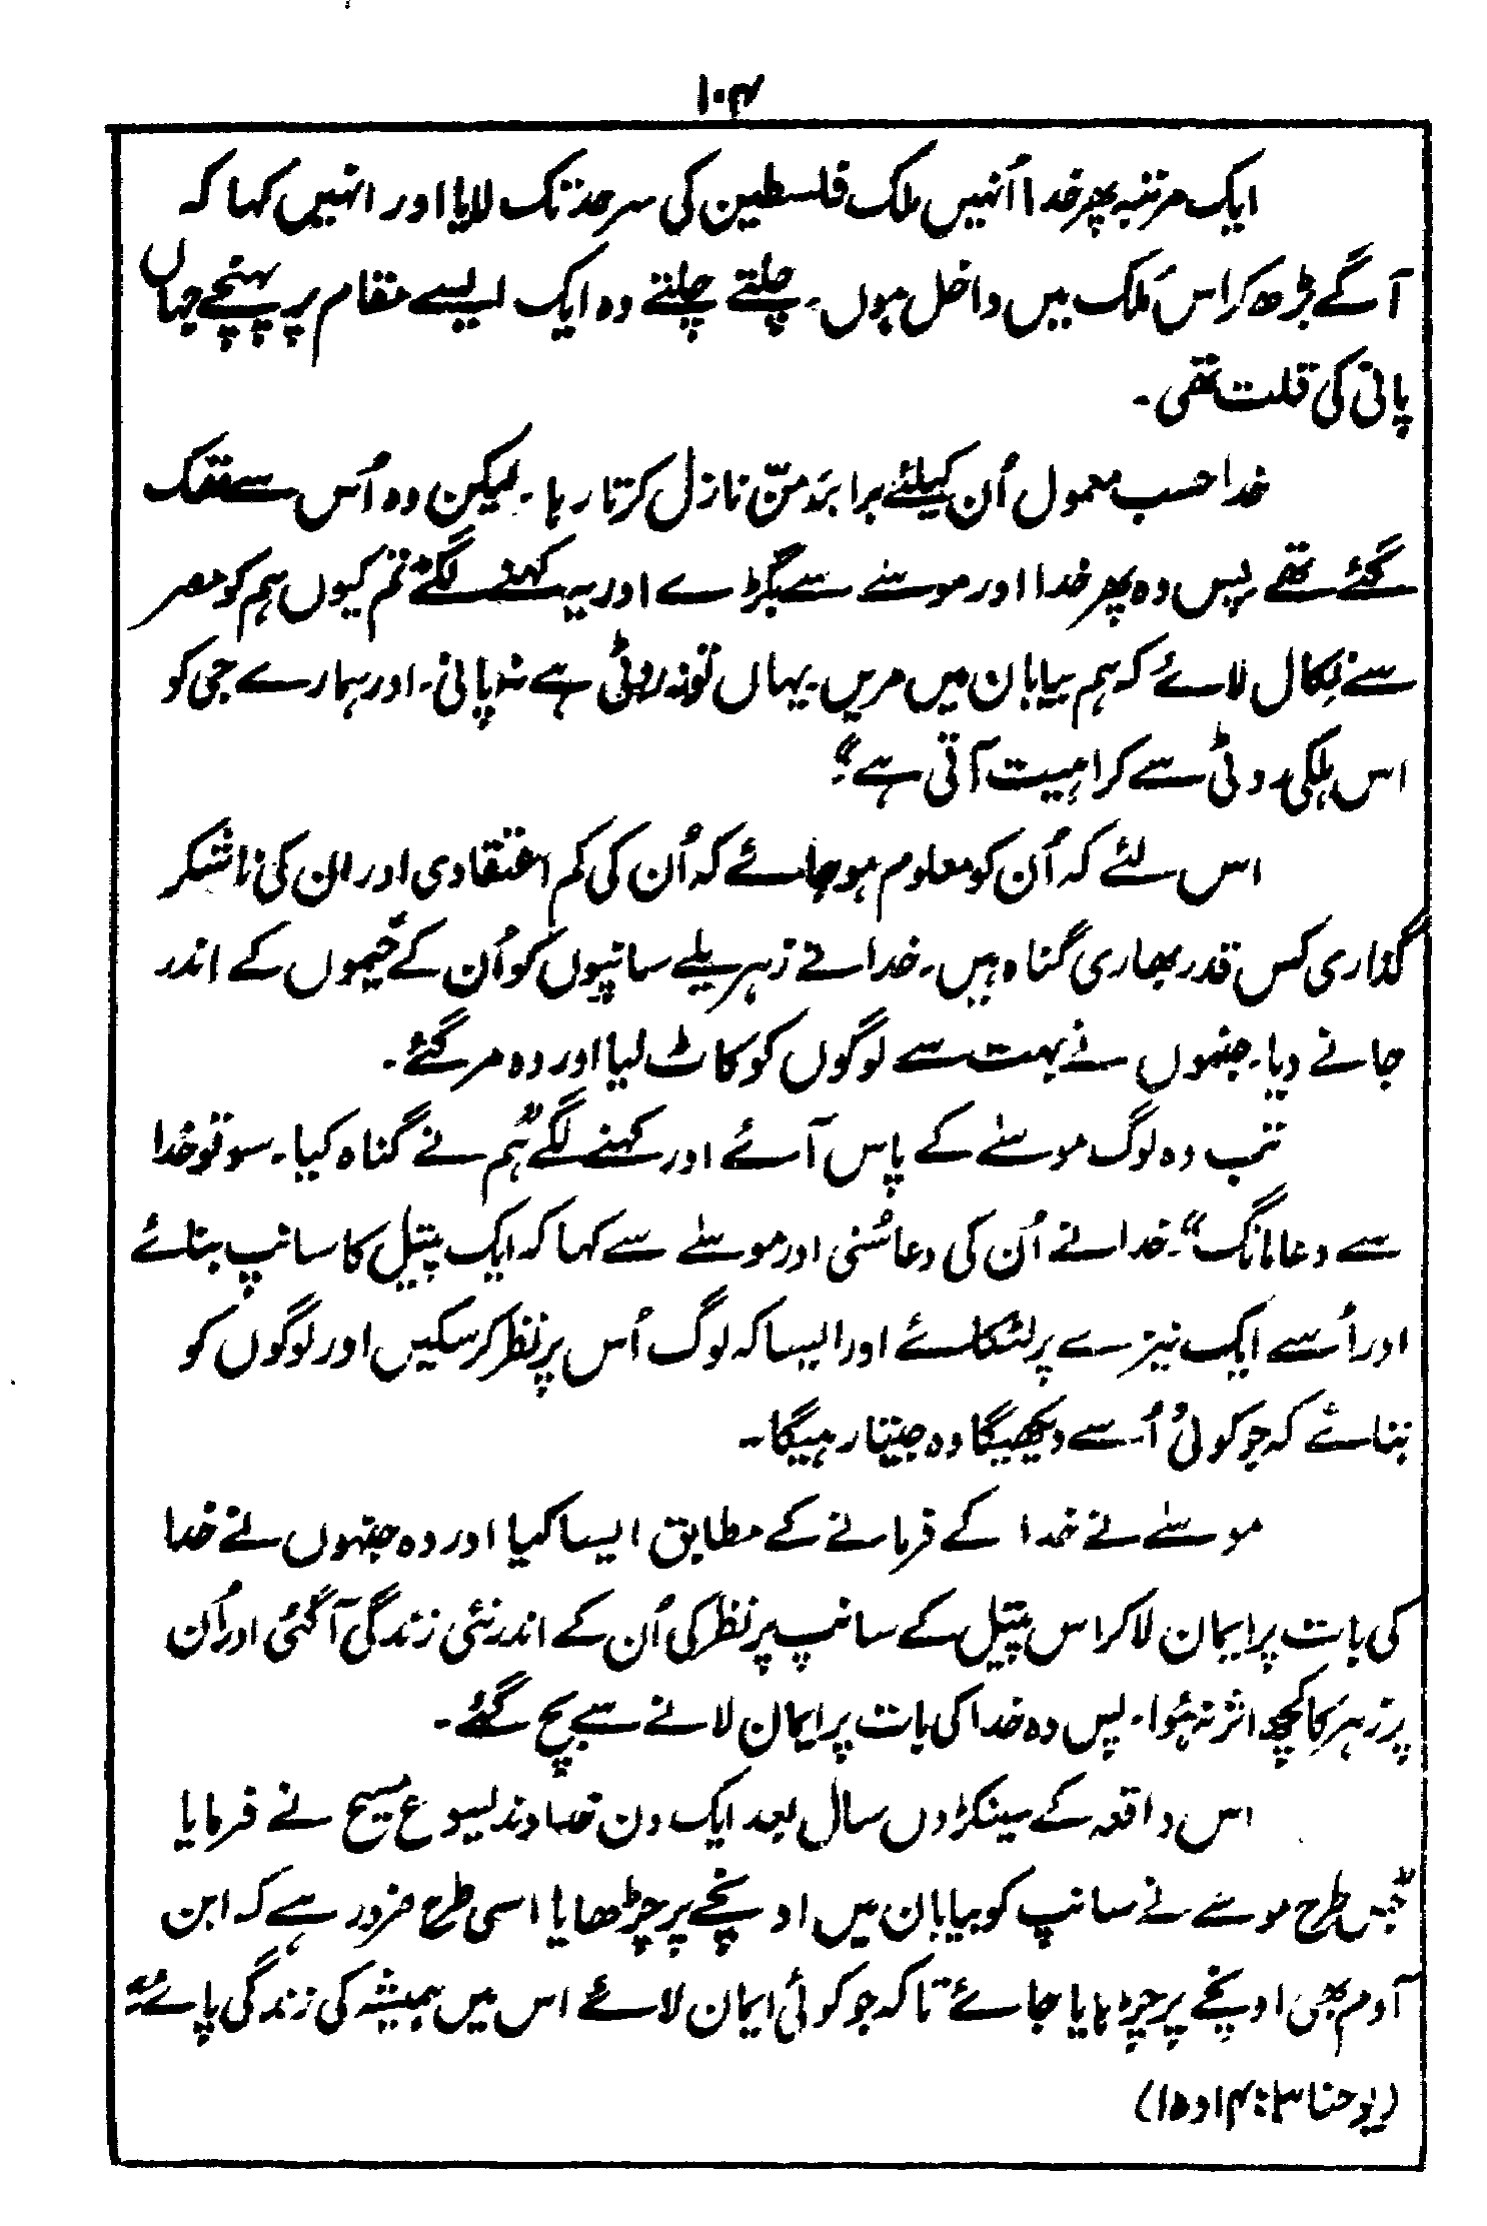 ۱۰۴
ایک مرتبہ پھر خدا اُنہیں ملک فلسطین کی سرحد تک لایا اور انہیں کہا کہ
آگے بڑھ کر اس مُلک میں داخل ہوں۔ چلتے چلتے وہ ایک ایسے مقام پر پہنچے جہاں
پانی کی قلت تھی۔
خدا حسب معمول اُن کیلئے برابر مَنّ نازل کرتا رہا۔ لیکن وہ اُس سے تھک
گئے تھے پس وہ پھر خدا اور موسےٰ سے بگڑے اور یہ کہنے لگے" تم کیوں ہم کو مصر
سے نکال لائے کہ ہم بیابان میں مریں۔ یہاں تو نہ روٹی ہے نہ پانی۔ اور ہمارے جی کو
اس ہلکی روٹی سے کراہیت آتی ہے"۔
اس لئے کہ اُن کو معلوم ہو جائے کہ اُن کی کم اعتقادی اور ان کی ناشکر
گذاری کس قدر بھاری گناہ ہیں۔ خدا نے زہریلے سانپوں کو اُن کے خیموں کے اندر
جانے دیا۔ جنہوں نے بہت سے لوگوں کو کاٹ لیا اور وہ مر گئے۔
تب وہ لوگ موسےٰ کے پاس آئے اور کہنے لگے "ہم نے گناہ کیا۔ سو تو خدا
سے دعا مانگ"۔ خدا نے اُن کی دعا سُنی اور موسےٰ سے کہا کہ ایک پیتل کا سانپ بنائے
اور اُسے ایک نیزے پر لٹکائے اور ایسا کہ لوگ اُس پر نظر کر سکیں اور لوگوں کو
بتائے کہ جو کوئی اُسے دیکھیگا وہ جیتا رہیگا۔
موسےٰ نے خدا کے فرمانے کے مطابق ایسا کیا اور وہ جنہوں نے خدا
کی بات پر ایمان لا کر اس پیتل کے سانپ پر نظر کی اُن کے اندر نئی زندگی آ گئی اور اُن
پر زہر کا کچھ اثر نہ ہُوا۔ پس وہ خدا کی بات پر ایمان لانے سے بچ گئے۔
اس واقعہ کے سینکڑوں سال بعد ایک دن خداوند یسوع مسیح نے فرمایا
"جس طرح موسےٰ نے سانپ کو بیابان میں اونچے پر چڑھایا اسی طرح ضرور ہے کہ ابن
آدم بھی اونچے پر چڑہایا جائے تا کہ جو کوئی ایمان لائے اس میں ہمیشہ کی زندگی پائے"۔
(یوحنا ۳: ۱۴ و ۱۵)